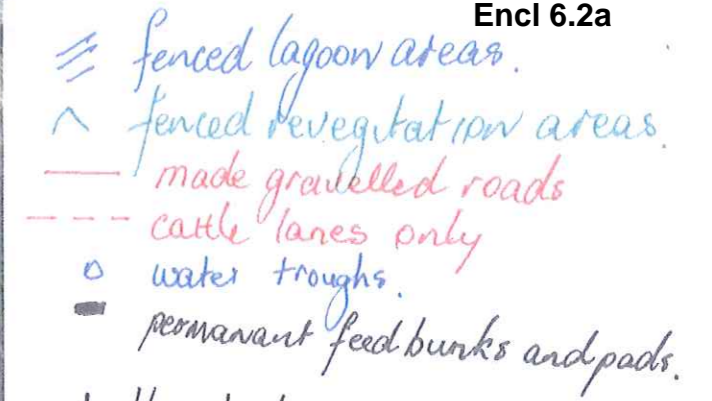 Encl 6.2a
fenced lagoon areas.
fenced revegitation areas.
made gravelled roads
cattle lanes only
water troughs.
permanant feed bunks and pads.